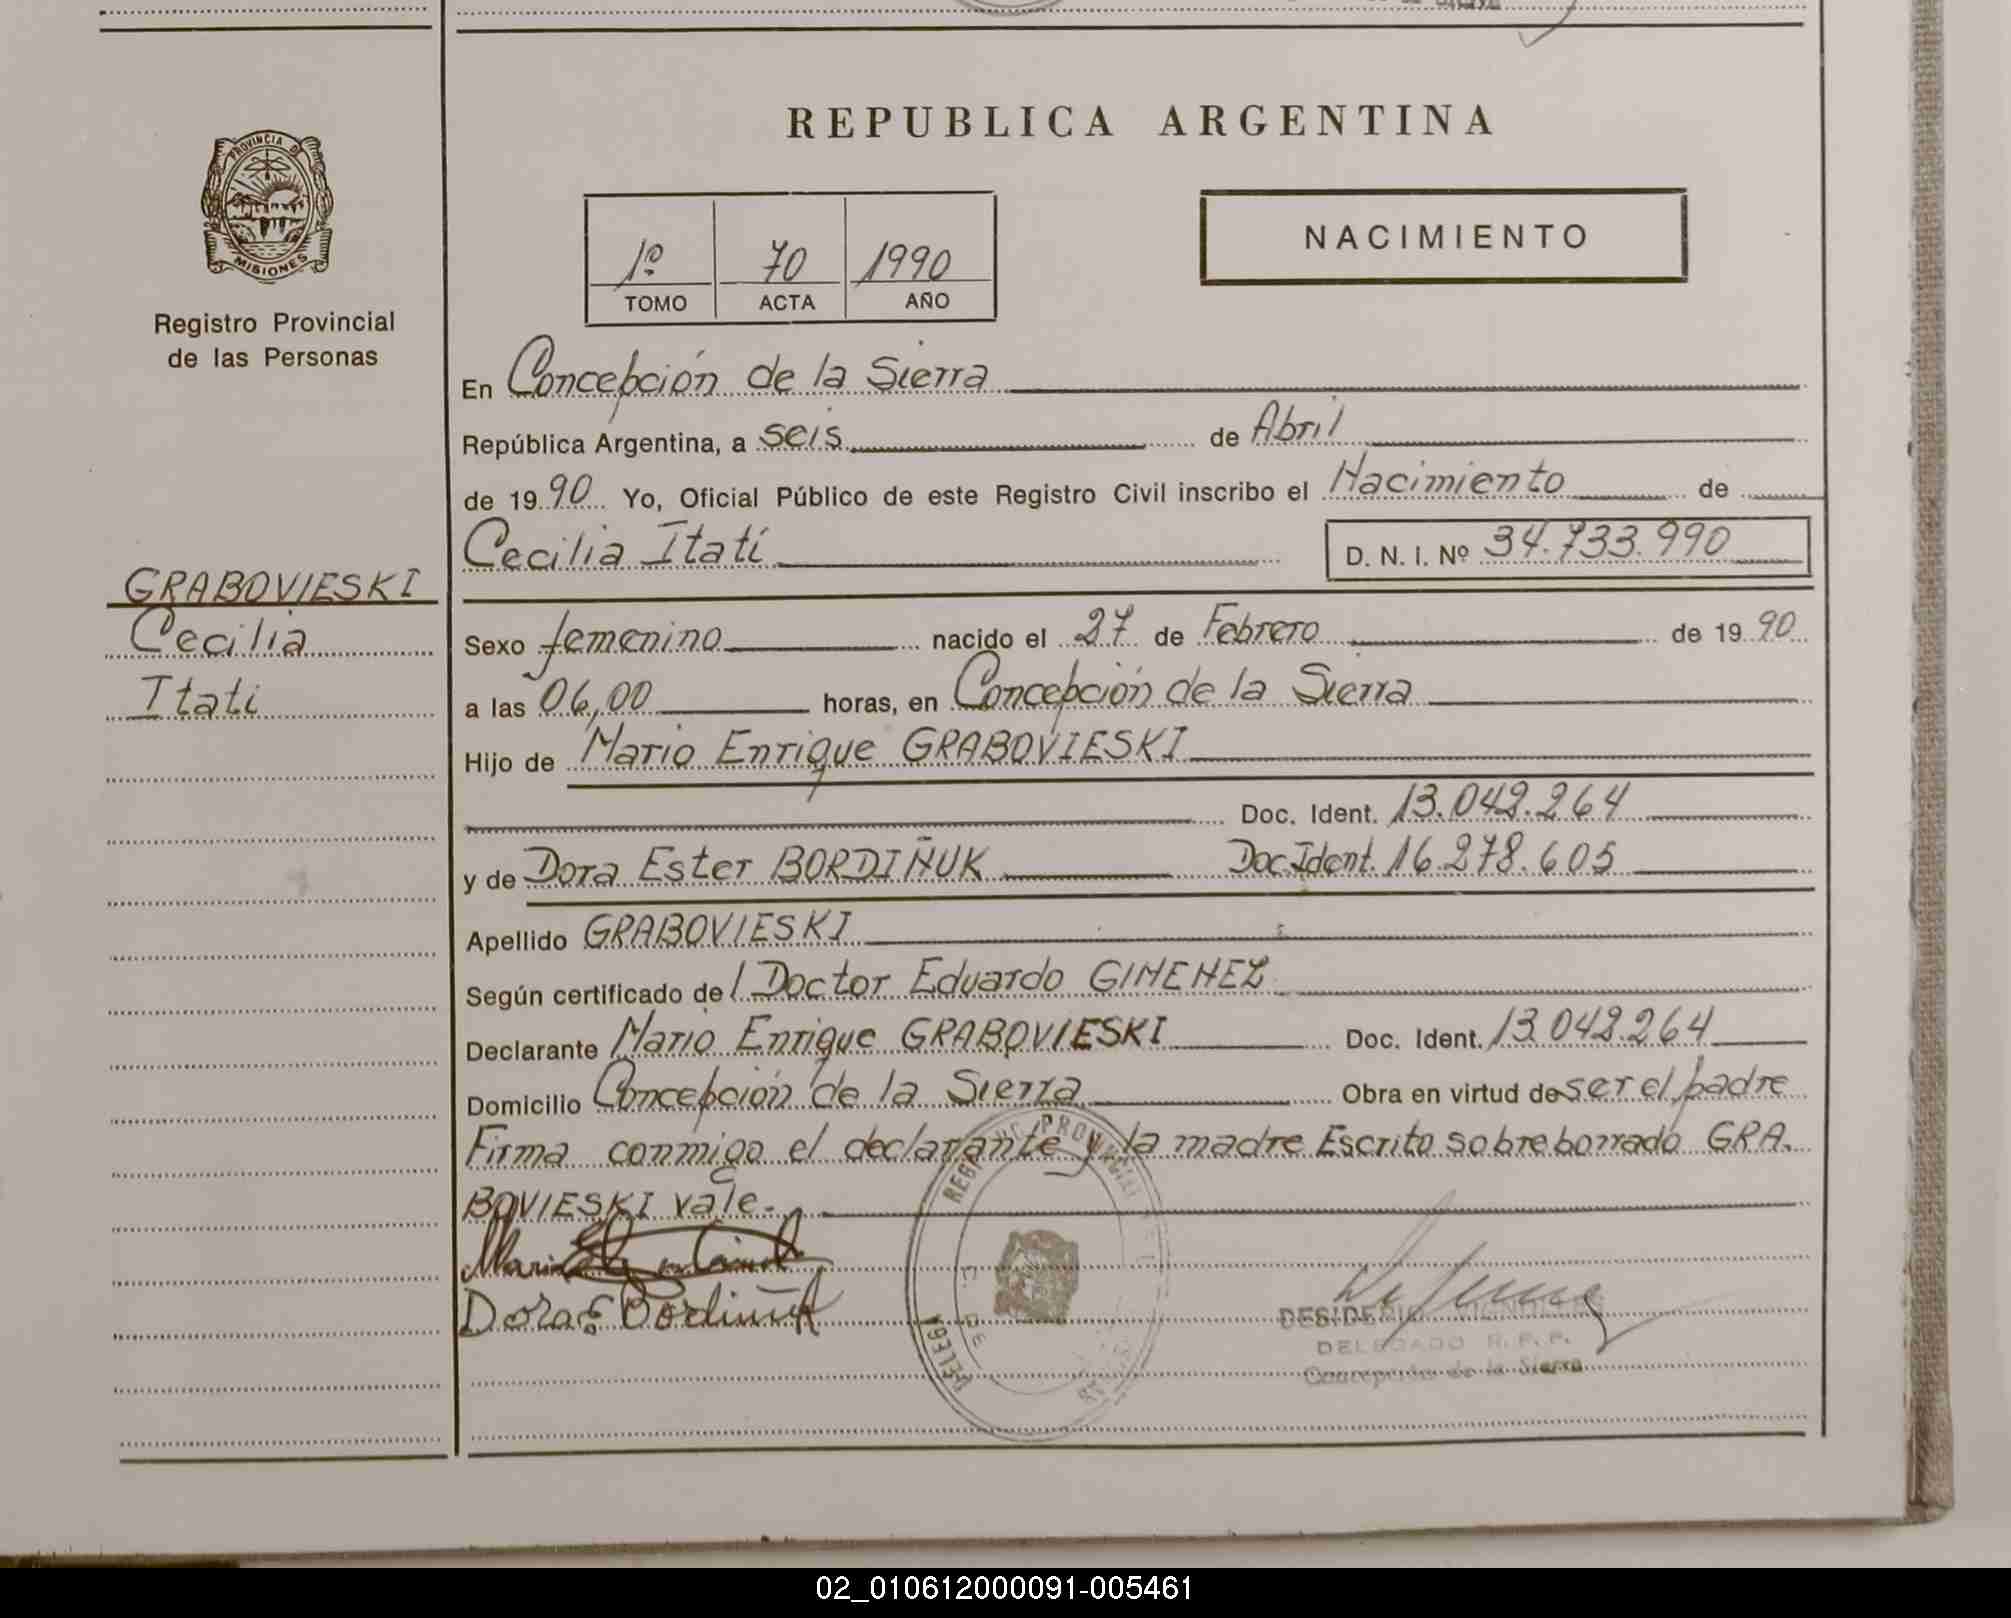 PROVINCIA D
MISIONES
Registro Provincial
de las Personas
GRABOVIESKI
Cecilia
Itatí
REPUBLICA ARGENTINA
1º 70 1990
TOMO ACTA AÑO
NACIMIENTO
En Concepción de la Sierra
República Argentina, a seis de Abril
de 1990 Yo, Oficial Público de este Registro Civil inscribo el Nacimiento de
Cecilia Itatí D. N. I. Nº 34.733.990
Sexo femenino nacido el 27 de Febrero de 1990
a las 06,00 horas, en Concepción de la Sierra
Hijo de Mario Enrique GRABOVIESKI
Doc. Ident. 13.042.264
y de Dora Ester BORDIÑUK Doc.Ident. 16.278.605
Apellido GRABOVIESKI
Según certificado del Doctor Eduardo GIMENEZ
Declarante Mario Enrique GRABOVIESKI Doc. Ident. 13.042.264
Domicilio Concepción de la Sierra Obra en virtud de ser el padre
Firma conmigo el declarante y la madre Escrito sobreborrado GRA.
BOVIESKI vale.
Dora E Bordiñuk
DESIDERIO
DELEGADO R. P. P.
Concepción de la Sierra
02_010612000091-005461